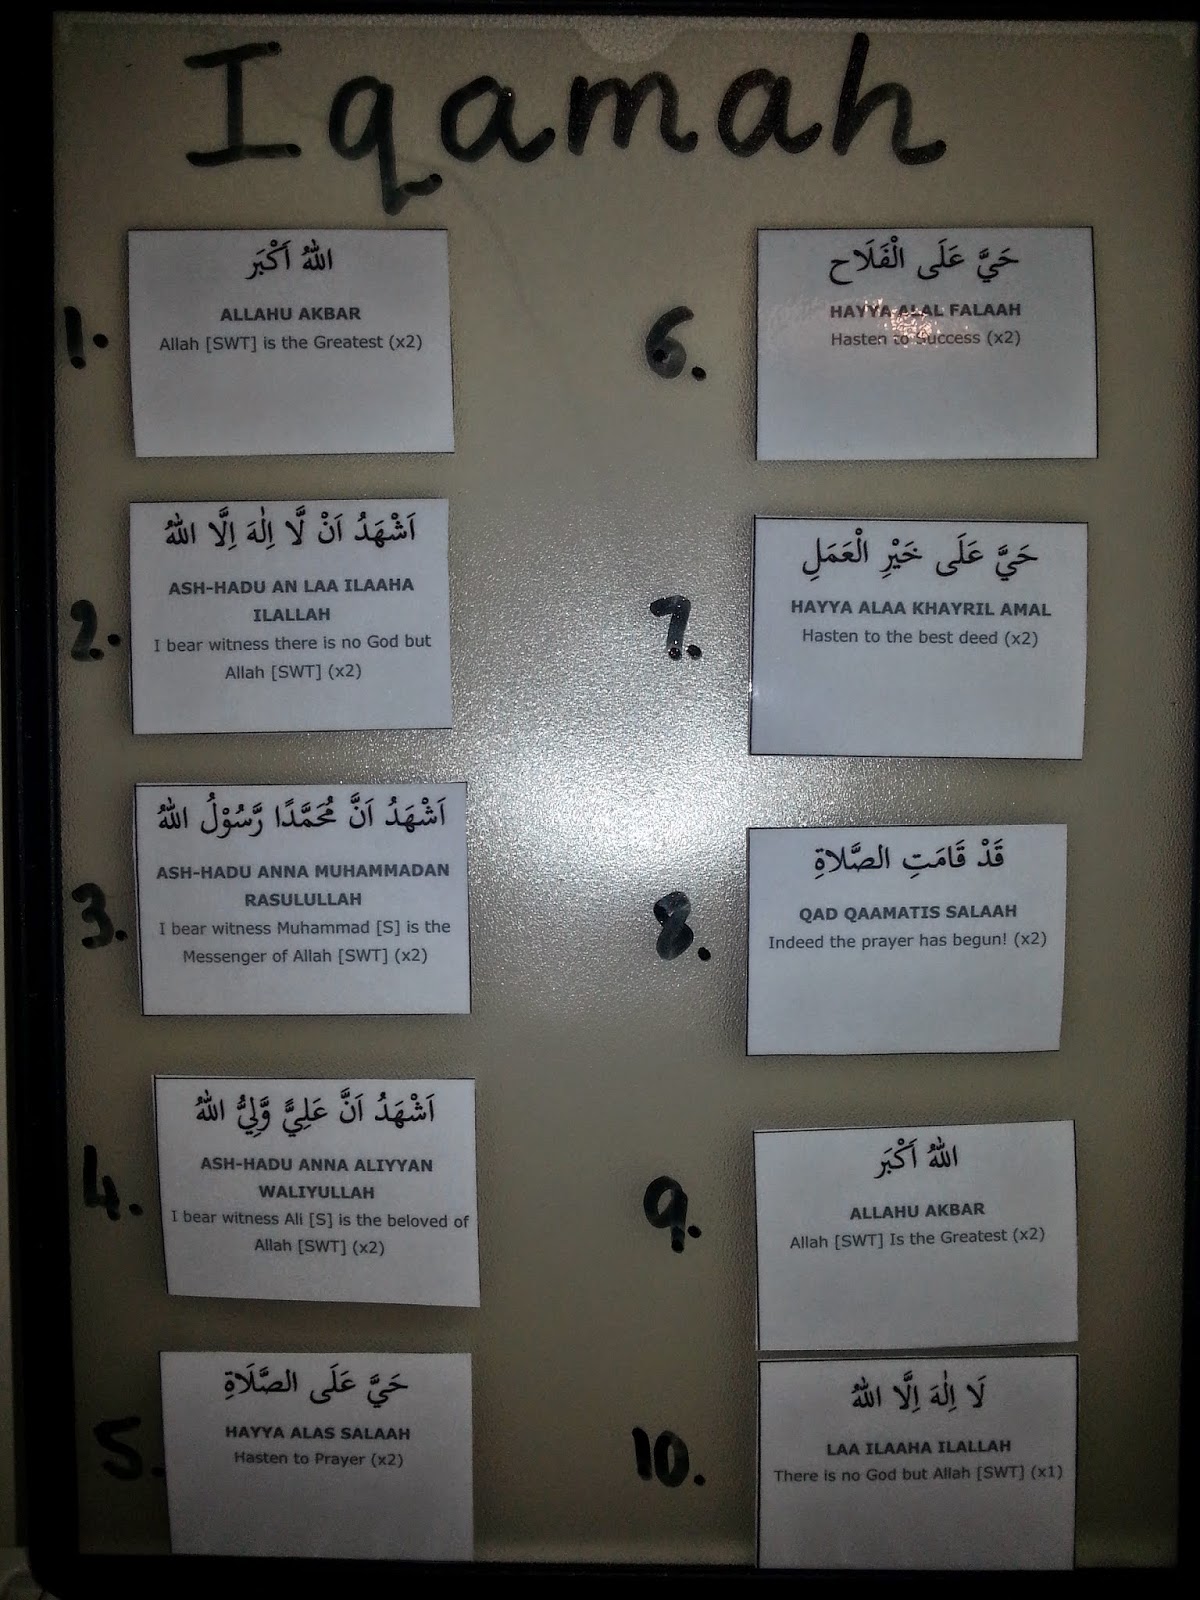 Iqamah
1.
اَللهُ اَكْبَر
ALLAHU AKBAR
Allah [SWT] is the Greatest (x2)
2.
اَشْهَدُ اَنْ لَّا اِلٰهَ اِلَّا اللهُ
ASH-HADU AN LAA ILAAHA
ILALLAH
I bear witness there is no God but
Allah [SWT] (x2)
3.
اَشْهَدُ اَنَّ مُحَمَّدًا رَّسُوْلُ اللهُ
ASH-HADU ANNA MUHAMMADAN
RASULULLAH
I bear witness Muhammad [S] is the
Messenger of Allah [SWT] (x2)
4.
اَشْهَدُ اَنَّ عَلِيًّ وَّلِيُّ اللهُ
ASH-HADU ANNA ALIYYAN
WALIYULLAH
I bear witness Ali [S] is the beloved of
Allah [SWT] (x2)
5.
حَيَّ عَلَى الصَّلَاةِ
HAYYA ALAS SALAAH
Hasten to Prayer (x2)
6.
حَيَّ عَلَى الْفَلَاح
HAYYA ALAL FALAAH
Hasten to Success (x2)
7.
حَيَّ عَلَى خَيْرِ الْعَمَلِ
HAYYA ALAA KHAYRIL AMAL
Hasten to the best deed (x2)
8.
قَدْ قَامَتِ الصَّلاةِ
QAD QAAMATIS SALAAH
Indeed the prayer has begun! (x2)
9.
اَللهُ اَكْبَر
ALLAHU AKBAR
Allah [SWT] Is the Greatest (x2)
10.
لَا اِلٰهَ اِلَّا اللهُ
LAA ILAAHA ILALLAH
There is no God but Allah [SWT] (x1)